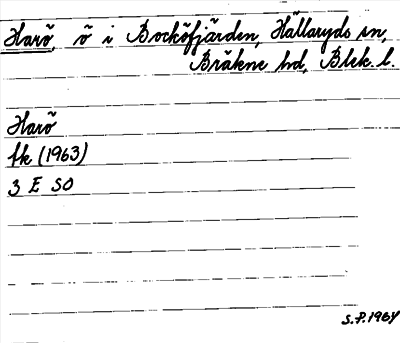 Harö, ö i Bocköfjärden, Hällaryds sn,
Bräkne hd, Blek. l.
Harö
fk (1963)
3 E SO
S.P. 1964